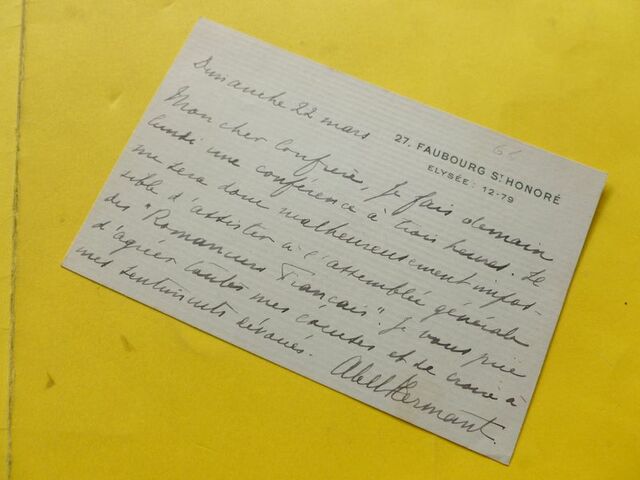 6!
27. FAUBOURG ST HONORÉ
ELYSÉE : 12-79
Dimanche 22 mars
Mon cher Confrère, je fais demain
lundi une conférence à trois heures. Il
me sera donc malheureusement impos-
sible d'assister à l'assemblée générale
des "Romanciers Français". Je vous prie
d'agréer toutes mes excuses et de croire à
mes sentiments dévoués.
Abel Hermant.